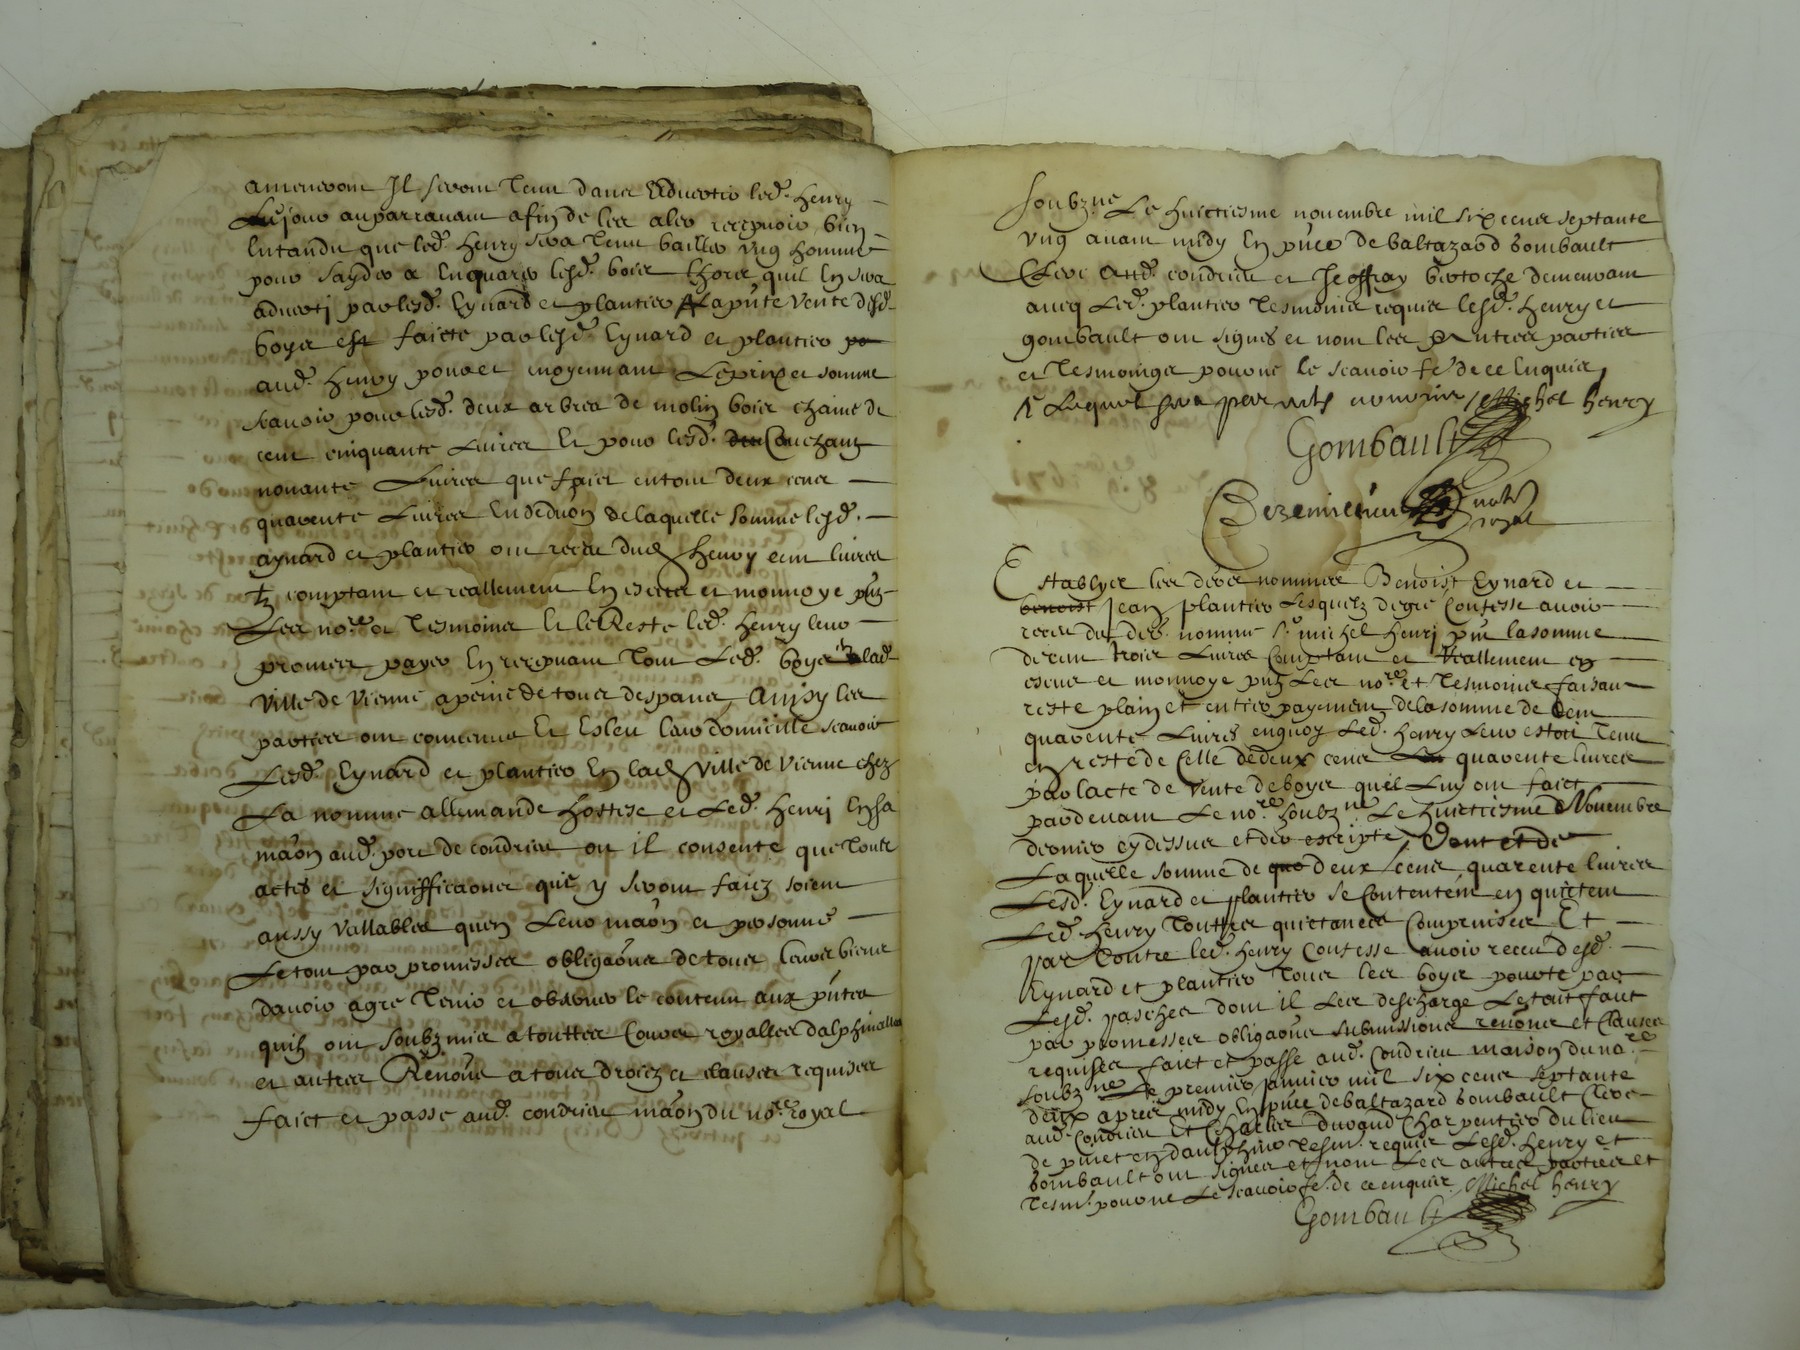 ameneront Il seront tenu dans advertir led. henry
Le jour auparravant afin de les aler recepvoir, bien
Entandu que led. henry sera tenu bailler ung homme
pour sayder a Enquarer lesd. bois lhors quil En sera
adverti par lesd. Eynard et plantier la pnte vente desd
boyes est faicte par lesd. Eynard et plantier
aud. henry pour et moyennant Le prix et somme
scavoir pour lesd. deux arbres de molin bois chaine de
cent cinquante Livres Et pour lesd.
nonante Livres que faict en tout deux cens
quarente Livres En deduon de laquelle somme lesd.
aynard et plantier ont receu dud henry cent livres
tz comptant et reallement En escus et monnoye pntz
Les nore et tesmoins Et le Reste led. henry leur
promect payer En recepvant tout Led. boyes a lad
ville de vienne a peine de tous despans, Ainsy les
parties ont convenu Et Esleu leur domicille scavoir
Lesd. Eynard et plantier En lad ville de vienne chez
La nomme allemande hostese et Led. henri En sa
maon aud. port de condrieu ou il consente que touts
actes et signifficaones que y seront faicz soient
aussy vallables quen Leur maon et personne
Le tout par promesses obligaons de tous leurs biens
davoir agre tenir et observer le contenu aux pntes
quilz ont soubzmis a touttes Cours royalles dalphinalles
et autres Renone a tous droicz et clauses requises
faict et passe aud. condrieu maon du nore royal
soubzne Le huictiesme novembre mil six cens septante
ung avant midy En pnce de baltazard bombault
Clerc aud. condrieu et Jeoffray bertoche demeurant
avecq Led. plantier tesmoins requis lesd. henry et
gombault ont signés et non les autres parties
et tesmoings pour ne le scavoir de ce Enquis,
Michel henry
Gombault
notre
royal
Establyes les devs nommes Benoist Eynard et
benoist Jean plantier Lesquelz de gre Confesse avoir
receu du der. nomme sr michel henri pnt la somme
de cent trois Livres Comptant et Reallement en
escus et monnoye pntz Les nore et tesmoins faisant
reste plain et entier payement de la somme de Cent
quarente Livres enquoy Led. henry Leur estoit tenu
en reste de Celle de deux cens quarente livres
par lacte de vente de boyes quil Luy ont faict
pardevant Le nore soubzne Le huictiesme Novembre
dernier cy dessus et der escripte, Dont et de
Laquelle somme de deux Cens quarente livres
Lesd. Eynard et plantier se Contentent en quictent
Led. henry touttes quictances Comprinses Et
par Contre led. henry Confesse avoir receu desd.
Eynard et plantier tous les boyes porte par
Lesd. pasches dont il Les descharge Le tout faict
par promesses obligaons submissions renons et Clauses
requises faict et passe aud. Condrieu maison du nore
soubzne Le premier janvier mil six cens septante
deux apres midy En pnce de baltazard bombault Clerc
aud. Condrieu Et Charles durand Charpentier du lieu
de en dauphine tesm. requis Lesd. henry et
bombault ont signes et non Les autres parties et
tesm. pour ne Le scavoir de ce enquis, Michel henry
Gombault